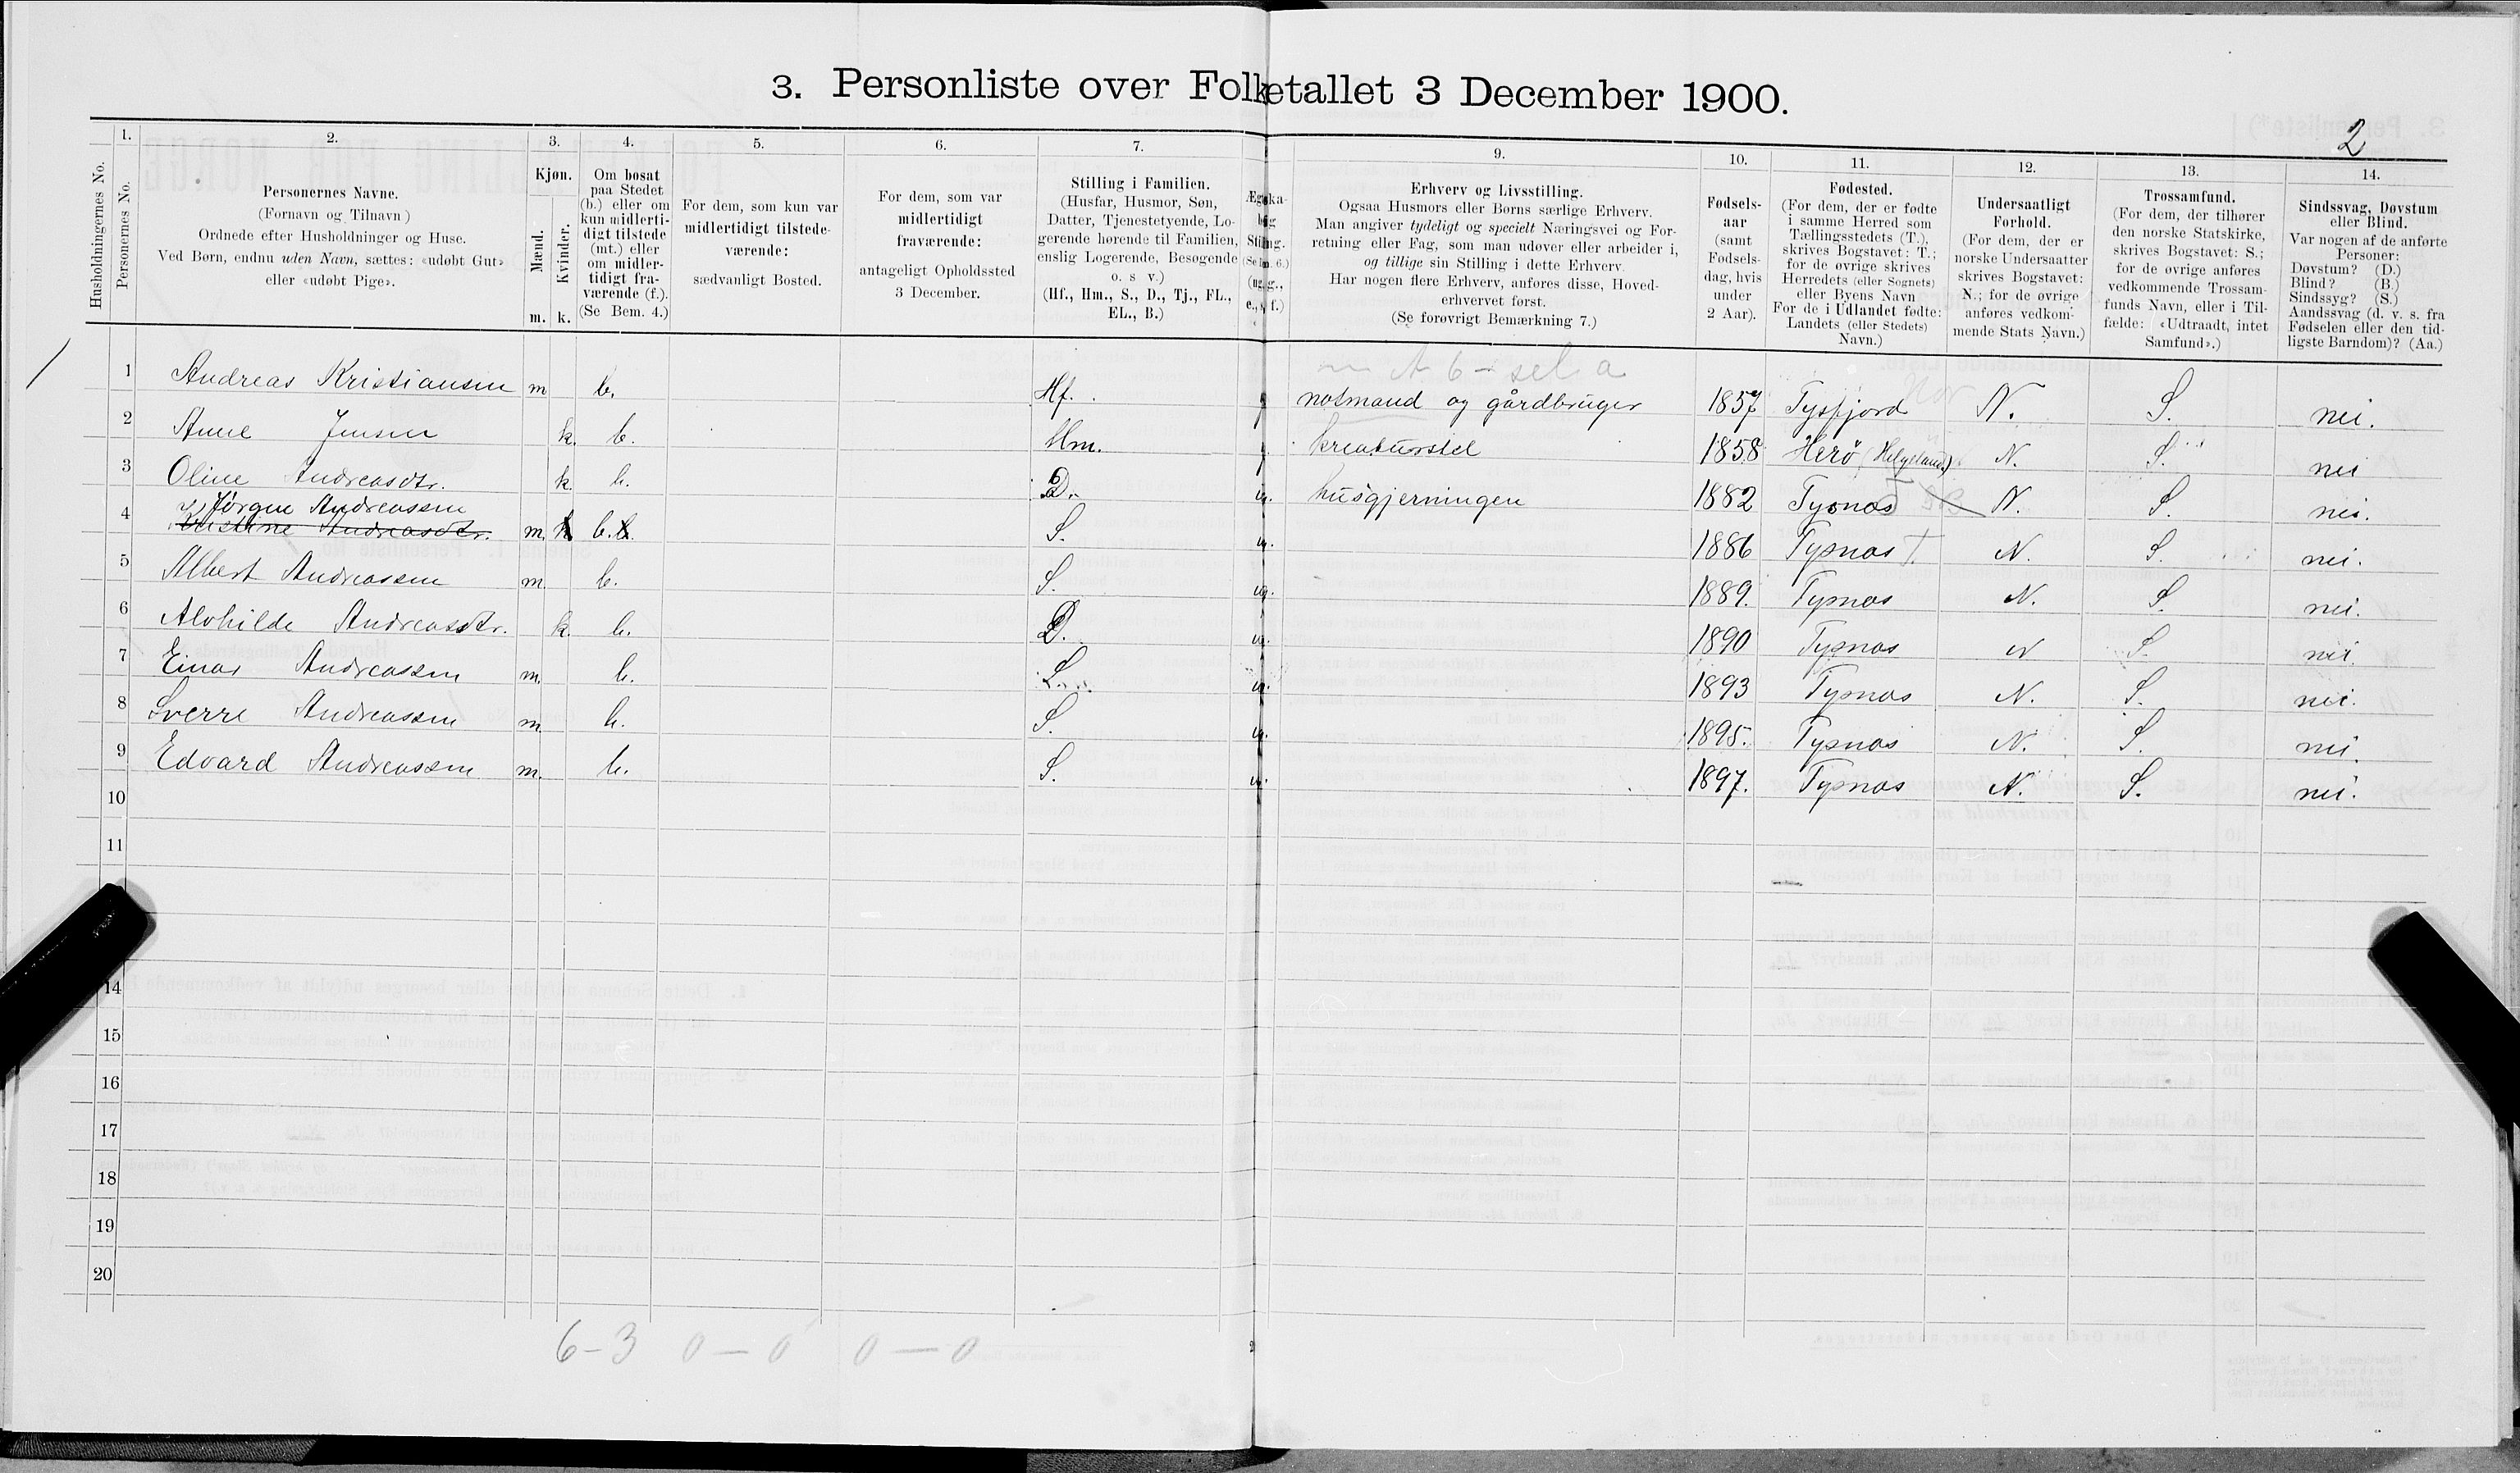 3. Personliste over Folketallet 3 December 1900.
2
Husholdningernes No.
1.
Personernes No.
2.
Personernes Navne.
(Fornavn og Tilnavn)
Ordnede efter Husholdninger og Huse.
Ved Børn, endnu uden Navn, sættes: «udøbt Gut»
eller «udøbt Pige».
3.
Kjøn.
Mænd.
Kvinder.
m. k.
4.
Om bosat
paa Stedet
(b.) eller om
kun midlerti-
digt tilstede
(mt.) eller
om midler-
tidigt fra-
værende (f.).
(Se Bem. 4.)
5.
For dem, som kun var
midlertidigt tilstede-
værende:
sædvanligt Bosted.
6.
For dem, som var
midlertidigt
fraværende:
antageligt Opholdssted
3 December.
7.
Stilling i Familien.
(Husfar, Husmor, Søn,
Datter, Tjenestetyende, Lo-
gerende hørende til Familien,
enslig Logerende, Besøgende
o. s v.)
(Hf., Hm., S., D., Tj., FL.,
EL., B.)
9.
Erhverv og Livsstilling.
Ogsaa Husmors eller Børns særlige Erhverv.
Man angiver tydeligt og specielt Næringsvei og For-
retning eller Fag, som man udøver eller arbeider i,
og tillige sin Stilling i dette Erhverv.
Har nogen flere Erhverv, anføres disse, Hoved-
erhvervet først.
(Se forøvrigt Bemærkning 7.)
10.
Fødsels-
aar
(samt
Fødsels-
dag, hvis
under
2 Aar).
11.
Fødested.
(For dem, der er fødte
i samme Herred som
Tællingsstedets (T.),
skrives Bogstavet: T.;
for de øvrige skrives
Herredets (eller Sognets)
eller Byens Navn
For de i Udlandet fødte:
Landets (eller Stedets)
Navn.)
12.
Undersaatligt
Forhold.
(For dem, der er
norske Undersaatter
skrives Bogstavet:
N.; for de øvrige
anføres vedkom-
mende Stats Navn.)
13.
Trossamfund.
(For dem, der tilhører
den norske Statskirke,
skrives Bogstavet: S.;
for de øvrige anføres
vedkommende Trossam-
funds Navn, eller i Til-
fælde: «Udtraadt, intet
Samfund».)
14.
Sindssvag, Døvstum
eller Blind.
Var nogen af de anførte
Personer:
Døvstum? (D.)
Blind? (B.)
Sindssyg? (S.)
Aandssvag (d. v. s. fra
Fødselen eller den tid-
ligste Barndom)? (Aa.)
1 Andreas Kristiansen m b. Hf. g notmand og gårdbruger 1857 Tysfjord N. S. nei.
2 Anne Jensen k. b. Hm. g kreaturstel 1858 Herø (Helgeland) N. S. nei
3 Oline Andreasdtr. k. b. D. u. husgjerningen 1882 Tysnas N. S. nei.
Jørgen Andreassen
4 Kristine Andreasdtr. m. k b. b. S. u. 1886 Tysnas T. N. S. nei.
5 Albert Andreassen m. b. S. ug. 1889. Tysnas N. S. nei.
6 Alvhilde Andreasdtr. k. b. D. u. 1890 Tysnas N S. nei.
7 Einar Andreassen m. b. S. u. 1893 Tysnas N. S. nei.
8 Sverre Andreassen m. b. S. u. 1895. Tysnas N. S. nei.
9 Edvard Andreassen m. b. S. u. 1897. Tysnas N. S. nei.
10
11
14
15
16
17
18
19
20
6-3 0-0 0-0